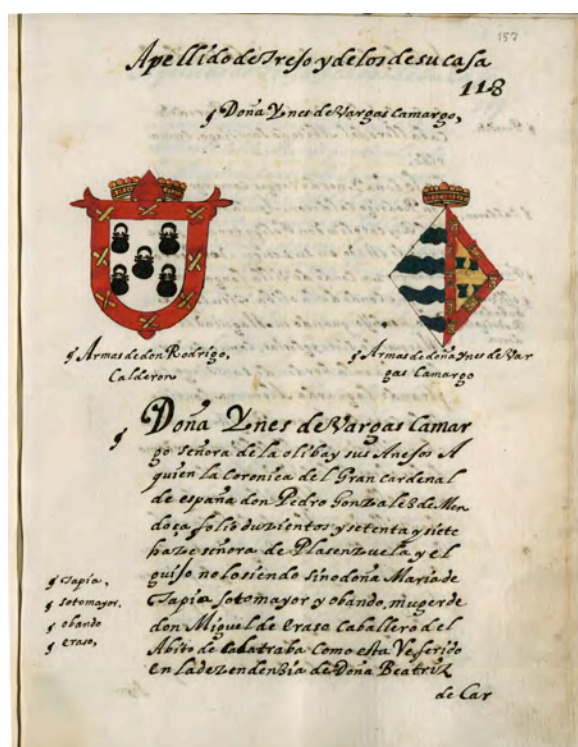 157
Apellido de Trejo y de los de su casa
118
Doña Ynes de Vargas Camargo,
Armas de don Rodrigo,
Calderon
Armas de doña Ynes de Var
gas Camargo
Doña Ynes de Vargas Camar
go señora de la oliba y sus Anejos A
quien la Coronica del Gran Cardenal
de españa don Pedro Gonzales de Men
doça folio duzientos y setenta y siete
haze señora de Plasenzuela y el
guijo no lo siendo sino doña Maria de
Tapia sotomayor y obando, muger de
don Miguel de eraso Caballero del
Abito de Calatraba Como esta Referido
en la dezendenzia de Doña Beatriz
de Car
Tapia,
sotomayor,
obando
eraso,